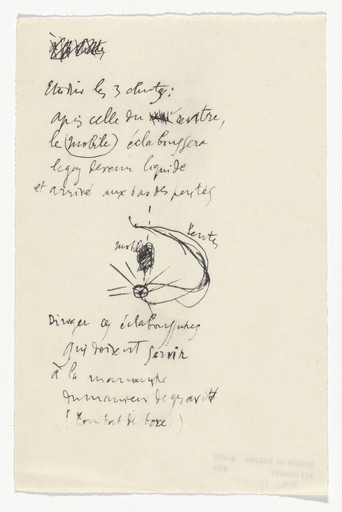 Etudier les 3 chutes:
après celle du centre,
le mobile éclaboussera
le gaz devenu liquide
et arrivé aux bas des pentes
Pentes
mobile
Diriger ces éclaboussures
qui doivent servir
à la manœuvre
du manieur de gravité
(Combat de boxe.)